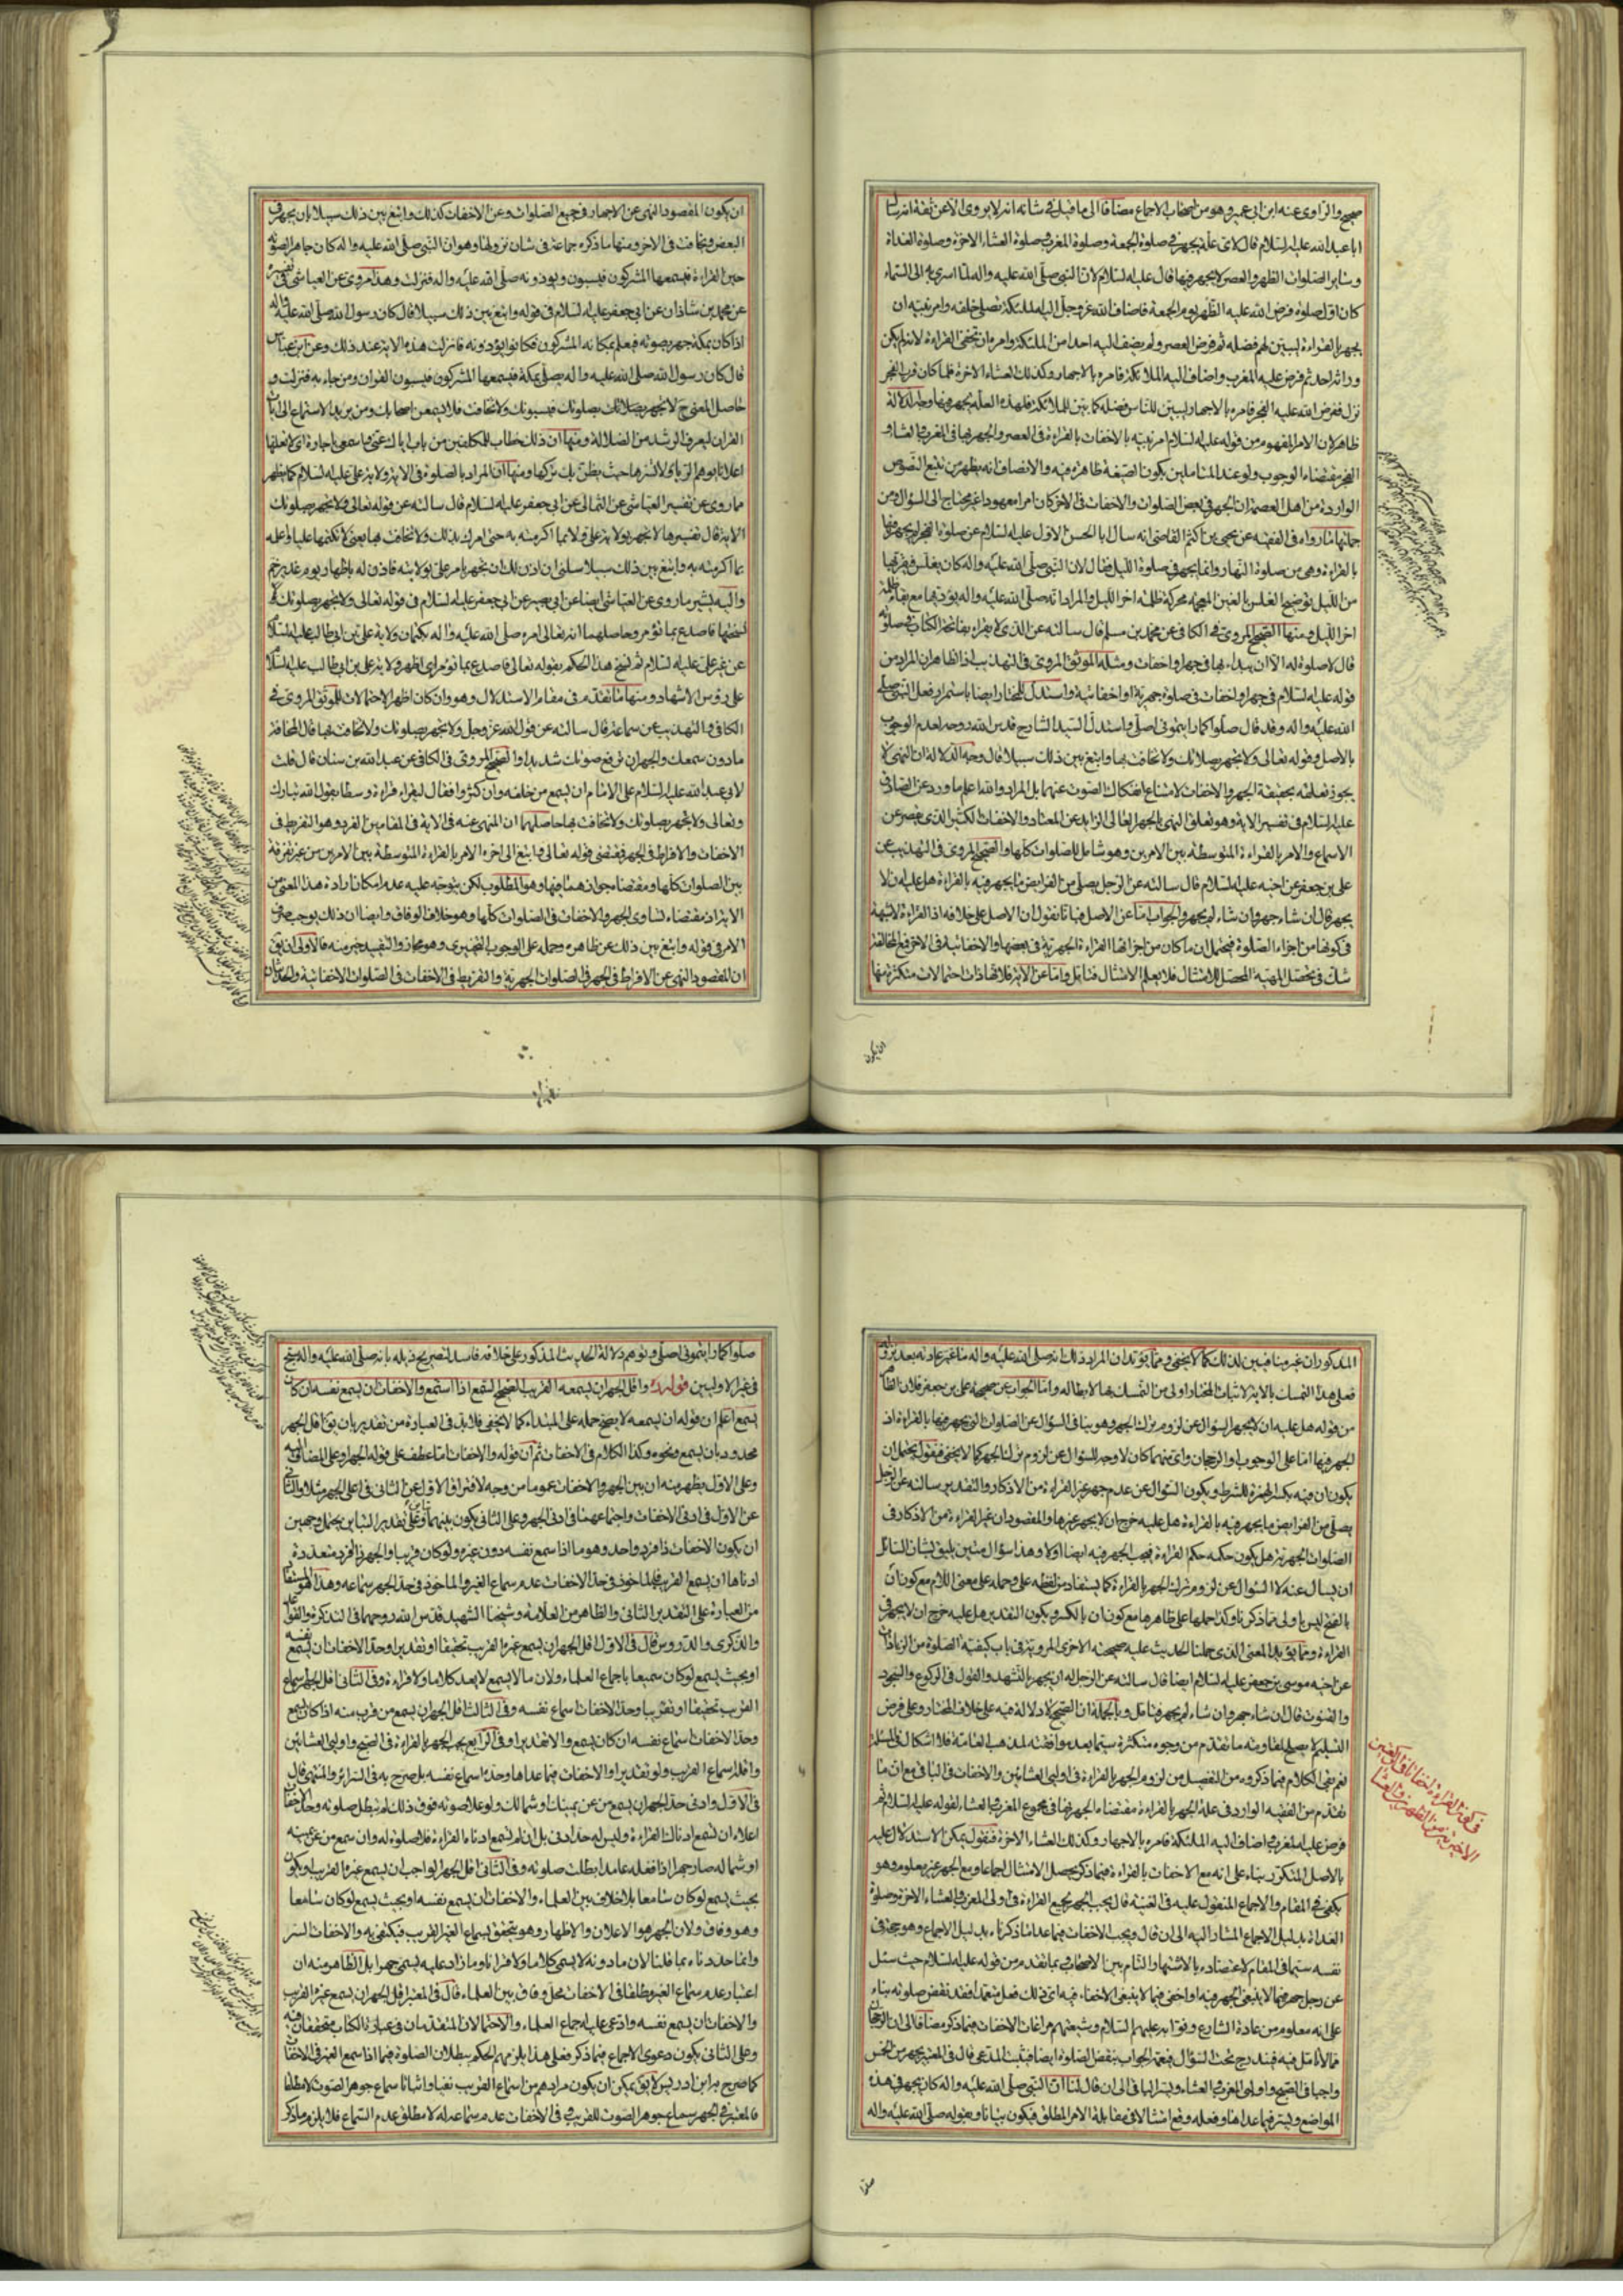 صحيح والراوى عنه ابن ابى عمير وهو من اصحاب الاجماع مضافا الى ما قيل فى شانه انه لا يروى الا عن ثقة انه سال
ابا عبد الله عليه السلام فقال لاى علة يجهر فى صلوة الجمعة وصلوة المغرب وصلوة العشاء الاخرة وصلوة الغداة
وساير الصلوات الظهر والعصر لا يجهر فيها قال عليه السلام لان النبى صلى الله عليه واله لما اسرى به الى السماء
كان اول صلوة فرض الله عليه الظهر يوم الجمعة فاضاف الله عز وجل اليه الملئكة تصلى خلفه وامر نبيه ان
يجهر بالقراءة ليبين لهم فضله ثم فرض العصر ولم يضف اليه احدا من الملئكة وامره ان تخفى القراءة لانه لم يكن
وراءه احد ثم فرض عليه المغرب واضاف اليه الملائكة فامره بالاجهار وكذلك العشاء الاخرة فلما كان قرب الفجر
نزل ففرض الله عليه الفجر فامره بالاجهار ليبين للناس فضله كما بين للملائكة فلهذه العلة يجهر فيها وجه الدلالة
ظاهر لان الامر المفهوم من قوله عليه السلام امر نبيه بالاخفات بالقراءة فى العصر والجهر بها فى المغرب والعشاء و
الفجر مقتضاه الوجوب ولو عند المتاملين يكون الصيغة ظاهرة فيه والانصاف انه يظهر من تتبع النصوص
الواردة من اهل العصمة ان الجهر فى بعض الصلوات والاخفات فى الاخر كان امرا معهودا غير محتاج الى السؤال ومن
جملتها ما رواه فى الفقيه عن يحيى بن اكثم القاضى انه سال ابا الحسن الاول عليه السلام عن صلوة الفجر لم يجهر فيها
بالقراءة وهى من صلوة النهار وانما يجهر فى صلوة الليل فقال لان النبى صلى الله عليه واله كان يغلس بها فقربها
من الليل توضيح الغلس بالغين المعجمة محركة ظلمة اخر الليل والمراد انه صلى الله عليه واله يؤديها مع بقاء ظلمة
اخر الليل ومنها الصحيح المروى فى الكافى عن محمد بن مسلم قال سالته عن الذى لا يقراء بفاتحة الكتاب فى صلوته
قال لا صلوة له الا ان يبداء بها فى جهر او اخفات ومثله الموثق المروى فى التهذيب اذ الظاهر ان المراد من
قوله عليه السلام فى جهر او اخفات فى صلوة جهرية او اخفاتية واستدل للمختار ايضا باستمرار فعل النبى صلى
الله عليه واله وقد قال صلوا كما رايتمونى اصلى واستدل السيد الشارح قدس الله روحه لعدم الوجوب
بالاصل وقوله تعالى ولا تجهر بصلاتك ولا تخافت بها وابتغ بين ذلك سبيلا قال وجه الدلالة ان النهى لا
يجوز تعلقه بحقيقة الجهر والاخفات لامتناع انفكاك الصوت عنهما بل المراد والله اعلم ما ورد عن الصادق
عليه السلام فى تفسير الاية وهو تعلق النهى بالجهر العالى الزايد عن المعتاد والاخفات الكثير الذى يقصر عن
الاسماع والامر بالقراءة المتوسطة بين الامرين وهو شامل للصلوات كلها والصحيح المروى فى التهذيب عن
على بن جعفر عن اخيه عليه السلام قال سالته عن الرجل يصلى من الفرايض ما يجهر فيه بالقراءة هل عليه ان لا
يجهر قال ان شاء جهر وان شاء لم يجهر والجواب اما عن الاصل فبانا نقول ان الاصل على خلافه اذ القراءة لا شبهة
فى كونها من اجزاء الصلوة فيحتمل ان ما كان من اجزائها القراءة الجهرية فى بعضها والاخفاتية فى الاخر فمع المخالفة
شك فى تحصل المهية المحصل للامتثال فلا يعلم الامتثال فتامل واما عن الاية فلانها ذات احتمالات متكثرة منها
ان يكون
ان يكون المقصود النهى عن الاجهار فى جميع الصلوات وعن الاخفات كذلك وابتغ بين ذلك سبيلا بان يجهر فى
البعض ويخافت فى الاخر ومنها ما ذكره جماعة فى شان نزولها وهو ان النبى صلى الله عليه واله كان جاهر الصوته
حين القراءة فيسمعها المشركون فيسبون ويؤذونه صلى الله عليه واله فنزلت وهذا مروى عن العياشى فى تفسيره
عن محمد بن شاذان عن ابى جعفر عليه السلام فى قوله وابتغ بين ذلك سبيلا قال كان رسول الله صلى الله عليه واله
اذا كان بمكة جهر بصوته فيعلم بمكانه المشركون فكانوا يؤذونه فانزلت هذه الاية عند ذلك وعن ابن عباس
قال كان رسول الله صلى الله عليه واله يصلى بمكة فيسمعها المشركون فيسبون القران ومن جاء به فنزلت و
حاصل المعنى ح لا تجهر بصلاتك بصلوتك فيسبونك ولا تخافت فلا يسمعن اصحابك ومن يريد الاستماع الى ايات
القران ليعرف الرشد من الضلالة ومنها ان ذلك خطاب للمكلفين من باب اياك عنى واسمعى يا جارة اى لا تعلنها
اعلانا يوهم الريا ولا تسرها حيث يظن بك تركها ومنها ان المراد بالصلوة فى الاية ولاية على عليه السلام كما يظهر
ما روى عن تفسير العياشى عن الثمالى عن ابى جعفر عليه السلام قال سالته عن قوله تعالى ولا تجهر بصلوتك
الاية قال تفسيرها لا تجهر بولاية على ولا بما اكرمته به حتى امرك بذلك ولا تخافت بها يعنى لا تكتمها عليا واعلمه
بما اكرمته به وابتغ بين ذلك سبيلا سلنى ان اذن لك ان تجهر بامر على بولايته فاذن له باظهار يوم غدير خم
واليه يشير ما روى عن العياشى ايضا عن ابى بصير عن ابى جعفر عليه السلام فى قوله تعالى ولا تجهر بصلوتك قال
نسختها فاصدع بما تؤمر وحاصلهما انه تعالى امره صلى الله عليه واله بكتمان ولاية على بن ابى طالب عليه السلام
عن غير على عليه السلام ثم نسخ هذا الحكم بقوله تعالى فاصدع بما تؤمر اى اظهر ولاية على بن ابى طالب عليه السلام
على رؤس الاشهاد ومنها ما تقدم فى مقام الاستدلال وهو وان كان اظهر الاحتمالات للموثق المروى فى
الكافى والتهذيب عن سماعة قال سالته عن قول الله عز وجل ولا تجهر بصلوتك ولا تخافت بها قال المخافة
ما دون سمعك والجهر ان ترفع صوتك شديدا والصحيح المروى فى الكافى عن عبد الله بن سنان قال قلت
لابى عبد الله عليه السلام على الامام ان يسمع من خلفه وان كثروا فقال ليقراء قراءة وسطا يقول الله تبارك
وتعالى ولا تجهر بصلوتك ولا تخافت بها حاصلهما ان المنهى عنه فى الاية فى المقامين الفرد وهو التفريط فى
الاخفات والافراط فى الجهر فمقتضى قوله تعالى وابتغ الى اخره الامر بالقراءة المتوسطة بين الامرين من غير تفرقة
بين الصلوات كلها ومقتضاه جوازهما فيها وهو المطلوب لكن يتوجه عليه عدم امكان ارادة هذا المعنى من
الاية اذ مقتضاه تساوى الجهر والاخفات فى الصلوات كلها وهو خلاف الوفاق وايضا ان ذلك يوجب صرف
الامر فى قوله وابتغ بين ذلك عن ظاهره وحمله على الوجوب التخييرى وهو مجاز والتقييد خير منه فالاولى ان يق
ان المقصود النهى عن الافراط فى الجهر فى الصلوات الجهرية والتفريط فى الاخفات فى الصلوات الاخفاتية والحديثان
المذكوران غير منافيين لذلك كما لا يخفى ومما يؤيد ان المراد ذلك انه صلى الله عليه واله ما غير عادته بعد نزول
فعلى هذا التمسك بالاية لاثبات المختار اولى من التمسك بها لابطاله واما الجواب عن صحيحة على بن جعفر فلان الظاهر
من قوله هل عليه ان لا يجهر السؤال عن لزوم ترك الجهر وهو ينافى السؤال عن الصلوات التى يجهر فيها بالقراءة اذ
الجهر فيها اما على الوجوب او الرجحان واى منهما كان لا وجه للسؤال عن لزوم ترك الجهر كما لا يخفى فنقول يحتمل ان
يكون ان فيه بكسر الهمزة للشرط ويكون السؤال عن عدم جهر غير القراءة من الاذكار والتقدير سالته عن الرجل
يصلى من الفرايض ما يجهر فيه بالقراءة هل عليه حرج ان لا يجهر غيرها والمقصود ان غير القراءة من الاذكار فى
الصلوات الجهرية هل يكون حكمه حكم القراءة فيجب الجهر فيه ايضا او لا وهذا سؤال متين يليق بشان السائل
ان يسال عنه لا السؤال عن لزوم ترك الجهر بالقراءة كما يستفاد من لفظه على وحمله على معنى اللام مع كون ان
بالفتح ليس باولى مما ذكرناه وكذا حملها على ظاهرها مع كون ان بالكسر ويكون التقدير هل عليه حرج ان لا يجهر فى
القراءة ومما يؤيد المعنى الذى حملنا الحديث عليه صحيحته الاخرى المروية فى باب كيفية الصلوة من الزيادات
عن اخيه موسى بن جعفر عليه السلام ايضا قال سالته عن الرجل له ان يجهر بالتشهد والقول فى الركوع والسجود
والقنوت قال ان شاء جهر وان شاء لم يجهر فتامل وبالجملة ان الصحيح لا دلالة فيه على خلاف المختار وعلى فرض
التسليم لا يصلح لمقاومة ما تقدم من وجوه متكثرة سيما بعد موافقته لمذهب العامة فلا اشكال فى المسئلة
نعم بقى الكلام فيما ذكروه من التفصيل من لزوم الجهر بالقراءة فى اوليى العشائين والاخفات فى البافى مع ان ما
تقدم من الفقيه الوارد فى علة الجهر بالقراءة مقتضاه الجهر بها فى مجموع المغرب والعشاء لقوله عليه السلام ثم
فرض عليه المغرب واضاف اليه الملئكة فامره بالاجهار وكذلك العشاء الاخرة فنقول يمكن الاستدلال عليه
بالاصل المتكرر بناء على انه مع الاخفات بالقراءة فيما ذكر يحصل الامتثال اجماعا ومع الجهر غير معلوم وهو
يكفى فى المقام والاجماع المنقول عليه فى الغنية قال يجب الجهر بجميع القراءة فى اولى المغرب والعشاء الاخرة وصلوة
الغداة بدليل الاجماع المشار اليه الى ان قال ويجب الاخفات فيما عدا ما ذكرناه بدليل الاجماع وهو حجة فى
نفسه سيما فى المقام لاعتضاده بالاشتهار التام بين الاصحاب وبما تقدم من قوله عليه السلام حيث سئل
عن رجل جهر فيما لا ينبغى الجهر فيه او اخفى فيما لا ينبغى الاخفاء فيه اى ذلك فعل متعمدا فقد نقض صلوته بناء
على انه معلوم من عادة الشارع وقوامه عليهم السلام وشيعتهم مراعات الاخفات فيما ذكر مضافا الى ان الرجحان
مما لا تامل فيه فيندرج تحت السؤال فيعمه الجواب بنقض الصلوة ايضا فيثبت المدعى قال فى المعتبر يجهر من الخمس
واجبا فى الصبح واوليى المغرب والعشاء ويسر الباقى الى ان قال لنا ان النبى صلى الله عليه واله كان يجهر فى هذه
المواضع ويسر فيما عداها وفعله وقع امتثالا فى مقابلة الامر المطلق فيكون بيانا وبقوله صلى الله عليه واله
صلوا
صلوا كما رايتمونى اصلى وتوهم دلالة الحديث المذكور على خلافه فاسد لتصريح ذيله بانه صلى الله عليه واله يسبح
فى غير الاوليين قوله ره واقل الجهر ان يسمعه القريب الصحيح السمع اذا استمع والاخفات ان يسمع نفسه ان كان
يسمع اعلم ان قوله ان يسمعه لا يصح حمله على المبتداء كما لا يخفى فلا بد فى العبارة من تقدير بان يق اقل الجهر
محدود بان يسمع ونحوه وكذا الكلام فى الاخفات ثم ان قوله والاخفات اما عطف على قوله الجهر او على المضاف اليه
وعلى الاول يظهر منه ان بين الجهر والاخفات عموما من وجه لافتراق الاول عن الثانى فى اعلى الجهر مثلا والثانى
عن الاول فى ادنى الاخفات واجتماعهما فى ادنى الجهر وعلى الثانى يكون بينهما تباين وعلى تقدير التباين يحتمل وجهين
ان يكون الاخفات ذا فرد واحد وهو ما اذا سمع نفسه دون غيره ولو كان قريبا والجهر ذا افرد متعددة
ادناها ان يسمع القريب فالماخوذ فى حد الاخفات عدم سماع الغير والماخوذ فى حد الجهر سماعه وهذا هو المستفاد
من العبارة على التقدير الثانى والظاهر من العلامة وشيخنا الشهيد قدس الله روحهما فى التذكرة والقواعد
والذكرى والدروس قال فى الاول اقل الجهر ان يسمع غيره القريب تحقيقا او تقديرا وحد الاخفات ان يسمع نفسه
او بحيث يسمع لو كان سميعا باجماع العلماء ولان ما لا يسمع لا يعد كلاما ولا قراءة وفى الثانى اقل الجهر سماع
القريب تحقيقا او تقريبا وحد الاخفات اسماع نفسه وفى الثالث اقل الجهر ان يسمع من قرب منه اذا كان يسمع
وحد الاخفات اسماع نفسه ان كان يسمع والا تقديرا وفى الرابع يجب الجهر بالقراءة فى الصبح واوليى العشائين
واقله اسماع القريب ولو تقديرا والاخفات فيما عداها وحده اسماع نفسه بل صرح به فى السرائر والمنتهى قال
فى الاول وادنى حد الجهر ان يسمع من عن يمينك او شمالك ولو علا صوته فوق ذلك لم تبطل صلوته وحد الاخفات
اعلاه ان تسمع اذناك القراءة وليس له حد ادنى بل ان لم تسمع اذناه القراءة فلا صلوة له وان سمع من عن يمينه
او شماله صار جهرا اذا فعله عامدا بطلت صلوته وفى الثانى اقل الجهر الواجب ان يسمع غيره القريب او يكون
بحيث يسمع لو كان سامعا بلا خلاف بين العلماء والاخفات ان يسمع نفسه او بحيث يسمع لو كان سامعا
وهو وفاق ولان الجهر هو الاعلان والاظهار وهو يتحقق بسماع الغير القريب فيكتفى به والاخفات السر
وانما حددناه بما قلنا لان ما دونه لا يسمى كلاما ولا قرانا وما زاد عليه يسمى جهرا بل الظاهر منه ان
اعتبار عدم سماع الغير مطلقا فى الاخفات محل وفاق بين العلماء قال فى المعتبر اقل الجهر ان يسمع غيره القريب
والاخفات ان يسمع نفسه وادعى عليه اجماع العلماء والاحتمالان المتقدمان فى عبارة الكتاب متحققان فيه
وعلى الثانى يكون دعوى الاجماع فيما ذكر فعلى هذا يلزمهم الحكم ببطلان الصلوة فيما اذا سمع الغير فى الاخفات
كما صرح به ابن ادريس لا يق يمكن ان يكون مرادهم من اسماع القريب نفيا واثباتا سماع جوهر الصوت لا مطلقا
فالمعتبر فى الجهر سماع جوهر الصوت للقريب وفى الاخفات عدم سماعه له لا مطلق عدم السماع فلا يلزم ما ذكر